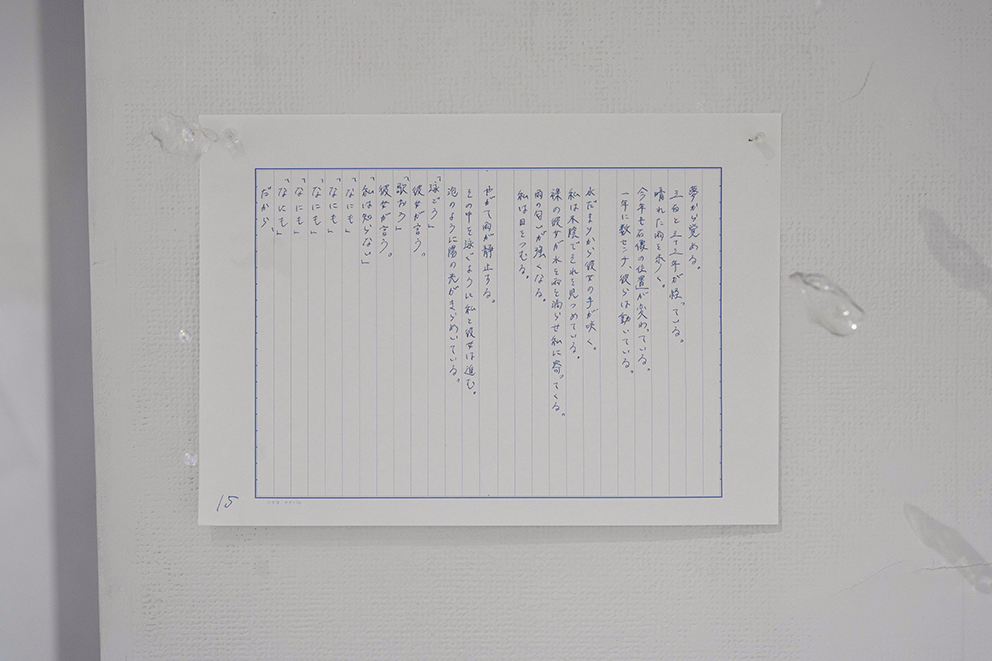 夢から覚める。
三百と三十三年が経っている。
晴れた雨を歩く。
今年も石像の位置が変わっている。
一年に数センチ、彼らは動いている。
水だまりから彼女の手が咲く。
私は木陰でそれを見つめている。
裸の彼女が水を滴らせ私に寄ってくる。
雨の匂いが強くなる。
私は目をつむる。
やがて雨が静止する。
その中を泳ぐように私と彼女は進む。
泡のように陽の光がきらめいている。
「泳ごう」
彼女が言う。
「歌おう」
彼女が言う。
「私は知らない」
「なにも」
「なにも」
「なにも」
「なにも」
「なにも」
だから、
15